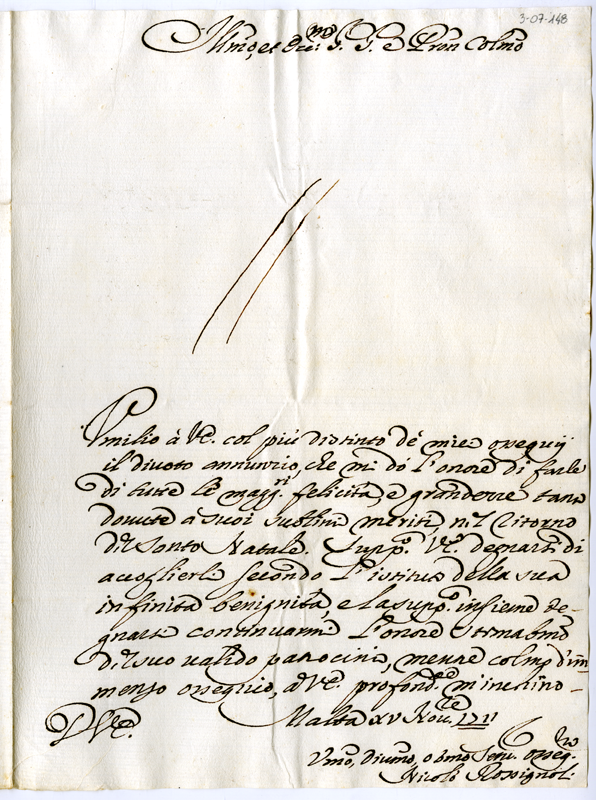 3-07-148
Illmo, et Ecc.mo S. S. e Pron Colmo
Umilio à V.E. col più distinto dè miei ossequij
il divoto annunzio, che mi dò l'onore di farle
di tutte le magg.ri felicità, e grandezze tanto
dovute a suoi sublimi meriti, nel ritorno
del Santo Natale. Supp.o V.E. degnarsi di
accoglierle secondo l'istituto della sua
infinita benignità, e la supp.o insieme de-
gnarsi continuarmi l'onore stimabmo
del suo valido patrocinio, mentre colmo d'im
menso ossequio, a V.E. profond.te m'inchino -
Malta xv Nov.bre 1711
D V.E.
Vmo, Divmo, o bmo Serv. osseq.
Nicolò Rossignol.